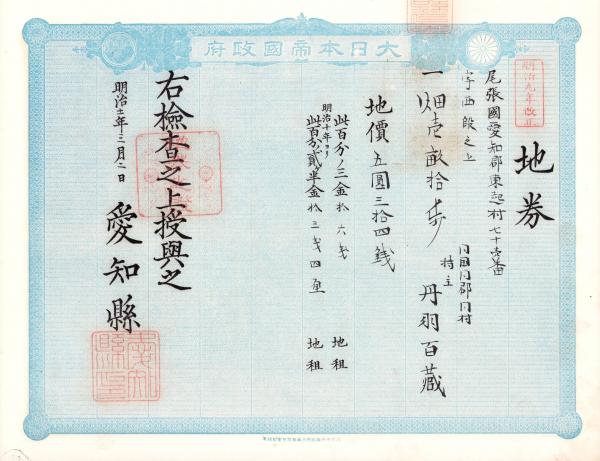 大日本帝國政府
明治九年改正
地券
尾張國愛知郡東起村七十壱番
字西
一畑壱畝拾歩
同国同郡同村
持主 丹羽百蔵
地價五圓三拾四銭
此百分ノ三金拾六銭 地租
明治十年ヨリ
此百分ノ貳半金拾三銭四厘 地租
右檢査之上授與之
明治十二年三月二日
愛知縣
愛知縣印